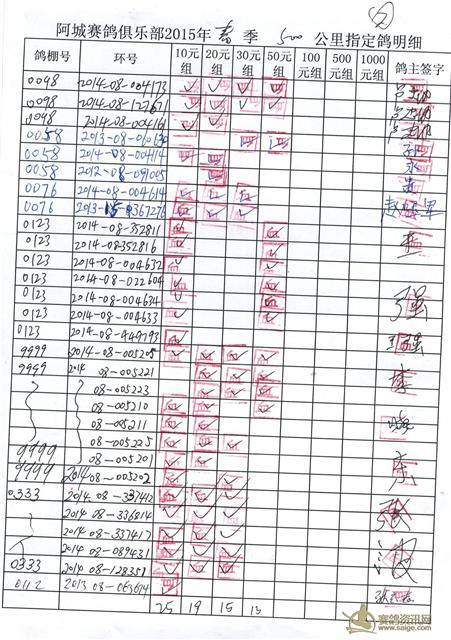 阿城赛鸽俱乐部2015年 春 季 500 公里指定鸽明细
鸽棚号 环号 10元组 20元组 30元组 50元组 100元组 500元组 1000元组 鸽主签字
0098 2014-08-004173
0098 2014-08-127671
0098 2014-08-004161
0058 2013-08-060630
0058 2014-08-004114
0058 2012-08-091005
0076 2014-08-004614
0076 2013-15-367276
0123 2014-08-352811
0123 2014-08-352816
0123 2014-08-004632
0123 2014-08-022604
0123 2014-08-004634
0123 2014-08-004633 强
0123 2014-08-449793 强
9999 2014-08-005205
9999 2014 08-005221 李
08-005223
08-005210
08-005211 晓
08-005225
9999 08-005201 东
9999 2014 08-005202
0333 2014 08-337412 张
2014 08-336814
2014 08-337417
2014 08-089431 波
0333 2014-08-128351
0112 2013 08-063614
25 19 15 13
赛鸽资讯网
www.saige.com